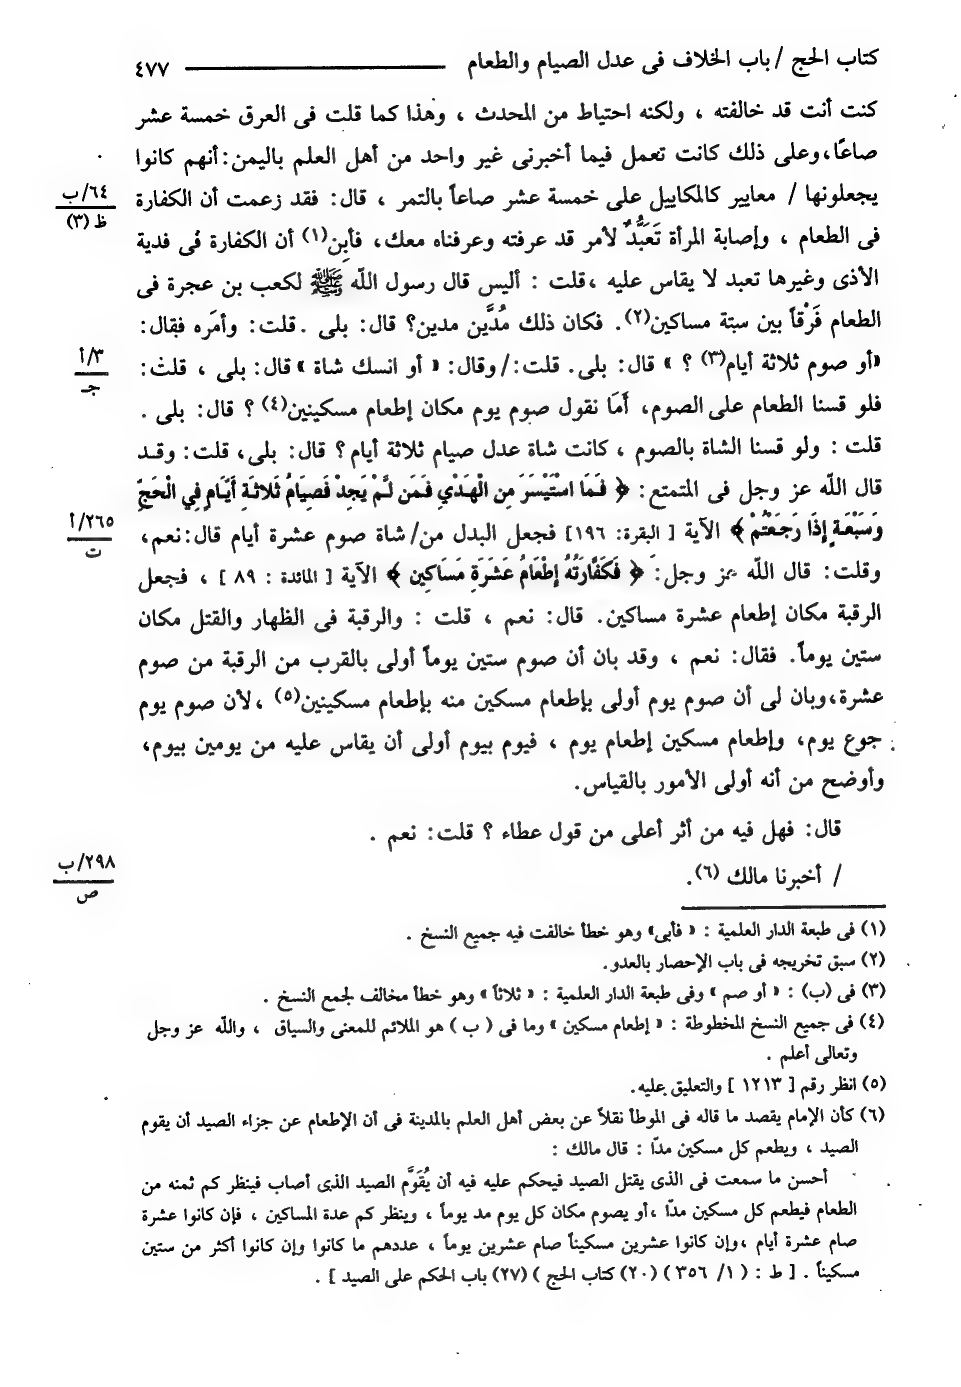 كتاب الحج / باب الخلاف فى عدل الصيام والطعام ـــــــــ ٤٧٧
كنت أنت قد خالفته ، ولكنه احتياط من المحدث ، وهذا كما قلت فى العرق خمسة عشر
صاعًا، وعلى ذلك كانت تعمل فيما أخبرنى غير واحد من أهل العلم باليمن : أنهم كانوا
يجعلونها / معايير كالمكاييل على خمسة عشر صاعاً بالتمر ، قال : فقد زعمت أن الكفارة
٦٤/ب
ظ (٣)
فى الطعام ، وإصابة المرأة تَعَبُّدٌ لأمر قد عرفته وعرفناه معك، فأبِن(١) أن الكفارة فى فدية
الأذى وغيرها تعبد لا يقاس عليه ، قلت : أليس قال رسول اللّه ﷺ لكعب بن عجرة فى
الطعام فَرْقاً بين ستة مساكين(٢). فكان ذلك مُدَّين مدين؟ قال: بلى . قلت: وأمَره فقال:
«أو صوم ثلاثة أيام(٣) ؟ » قال: بلى. قلت: / وقال: « أو انسك شاة » قال: بلى ، قلت:
٣/أ
جـ
فلو قسنا الطعام على الصوم، أَمَا نقول صوم يوم مكان إطعام مسكينين(٤) ؟ قال: بلى .
قلت : ولو قسنا الشاة بالصوم ، كانت شاة عدل صيام ثلاثة أيام ؟ قال: بلى، قلت: وقـد
قال اللّه عز وجل فى المتمتع: ﴿ فَمَا اسْتَيْسَرَ مِنَ الْهَدْيِ فَمَن لَّمْ يَجِدْ فَصِيَامُ ثَلاثَةِ أَيَّامٍ فِي الْحَجِّ
وَسَبْعَةٍ إِذَا رَجَعْتُمْ ﴾ الآية [ البقرة: ١٩٦] فجعل البدل من/ شاة صوم عشرة أيام قال: نعم،
٢٦٥/أ
ت
وقلت: قال اللّه عز وجل: ﴿ فَكَفَّارَتُهُ إِطْعَامُ عَشَرَةِ مَسَاكِينَ ﴾ الآية [ المائدة : ٨٩ ] ، فجعل
الرقبة مكان إطعام عشرة مساكين. قال: نعم ، قلت : والرقبة فى الظهار والقتل مكان
ستين يوماً. فقال: نعم ، وقد بان أن صوم ستين يوماً أولى بالقرب من الرقبة من صوم
عشرة، وبان لى أن صوم يوم أولى بإطعام مسكين منه بإطعام مسكينين(٥) ، لأن صوم يوم
جوع يوم، وإطعام مسكين إطعام يوم ، فيوم بيوم أولى أن يقاس عليه من يومين بيوم،
وأوضح من أنه أولى الأمور بالقياس.
قال: فهل فيه من أثر أعلى من قول عطاء ؟ قلت: نعم .
/ أخبرنا مالك (٦).
٢٩٨/ب
ص
(١) فى طبعة الدار العلمية : « فأبى» وهو خطأ خالفت فيه جميع النسخ .
(٢) سبق تخريجه فى باب الإحصار بالعدو.
(٣) فى (ب) : « أو صم » وفى طبعة الدار العلمية : « ثلاثاً » وهو خطأ مخالف لجمع النسخ .
(٤) فى جميع النسخ المخطوطة : « إطعام مسكين » وما فى ( ب ) هو الملائم للمعنى والسياق ، واللّه عز وجل
وتعالى أعلم .
(٥) انظر رقم [ ١٢١٣ ] والتعليق عليه.
(٦) كأن الإمام يقصد ما قاله فى الموطأ نقلاً عن بعض أهل العلم بالمدينة فى أن الإطعام عن جزاء الصيد أن يقوم
الصيد ، ويطعم كل مسكين مدّا : قال مالك :
أحسن ما سمعت فى الذى يقتل الصيد فيحكم عليه فيه أن يُقَوَّم الصيد الذى أصاب فينظر كم ثمنه من
الطعام فيطعم كل مسكين مدّا ، أو يصوم مكان كل يوم مد يوماً ، وينظر كم عدة المساكين ، فإن كانوا عشرة
صام عشرة أيام ، وإن كانوا عشرين مسكيناً صام عشرين يوماً ، عددهم ما كانوا وإن كانوا أكثر من ستين
مسكيناً . [ ط : ( ١/ ٣٥٦ ) (٢٠) كتاب الحج ) (٢٧) باب الحكم على الصيد ] .